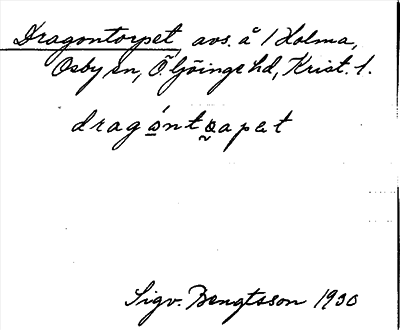 Dragontorpet, avs. å 1 Holma,
Osby sn, Ö. Göinge hd, Krist. l.
dragónto̰apet
Sigv. Bengtsson 1930